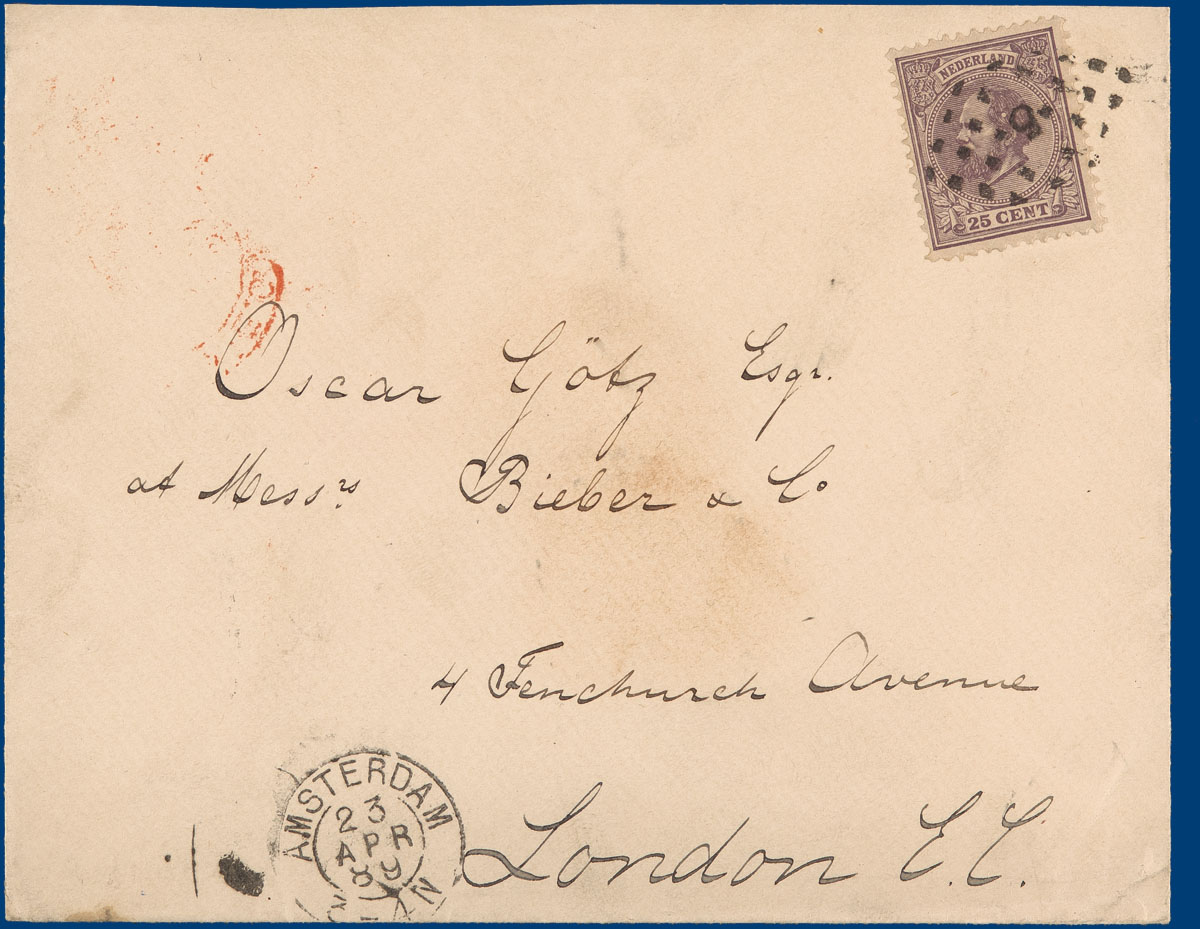 NEDERLAND
25 CENT
Oscar Götz Esqr.
at Messrs Bieber & Co
4 Fenchurch Avenue
London E.C.
AMSTERDAM
23
APR